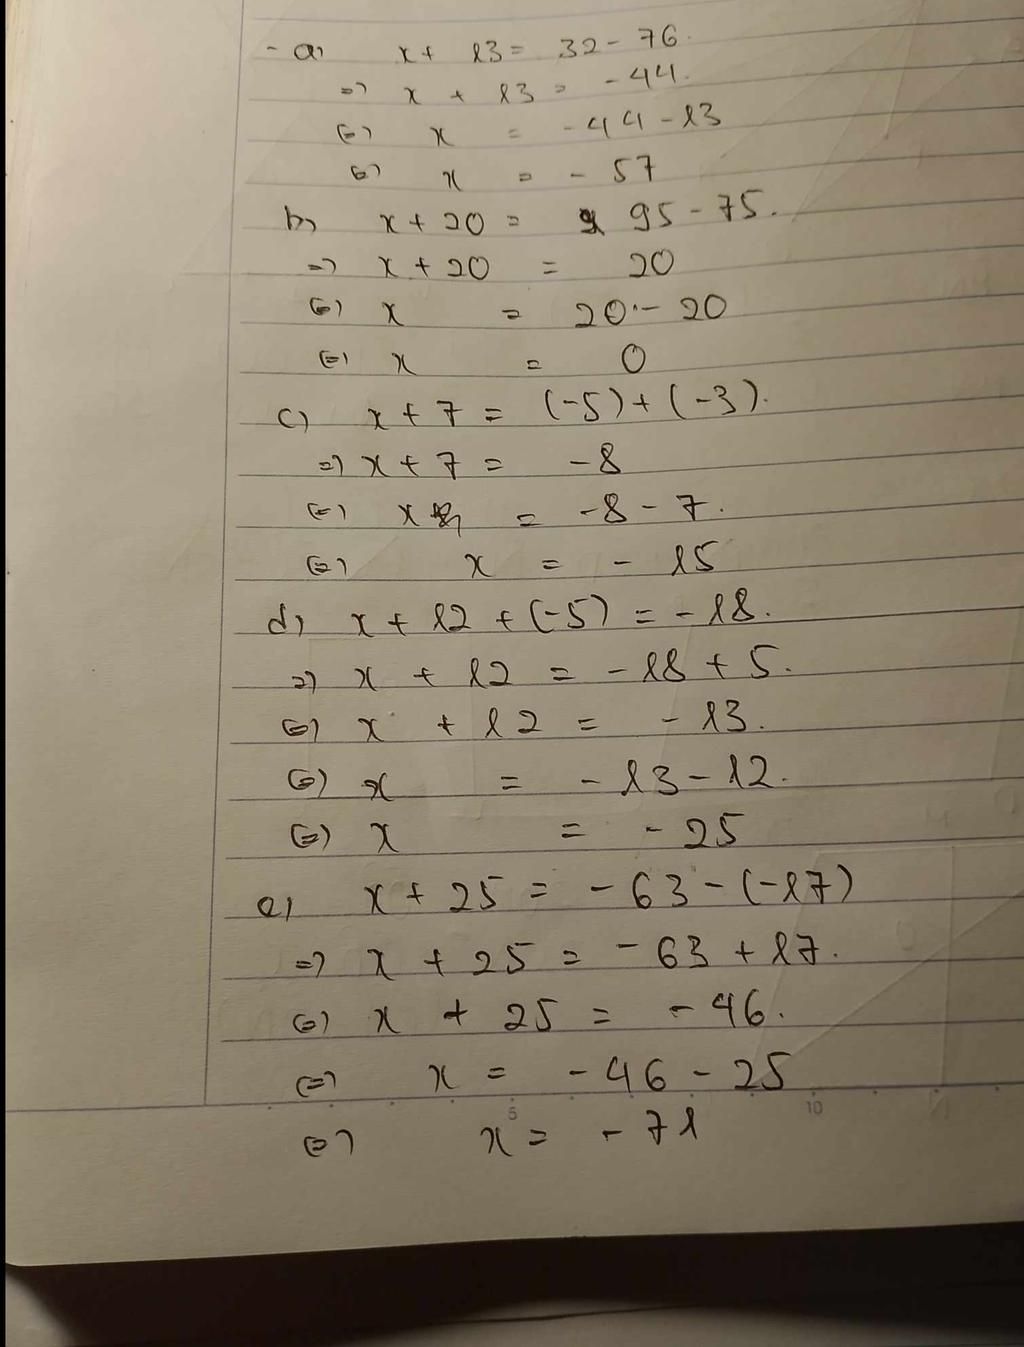 - a) x + 13 = 32 - 76.
=> x + 13 = -44.
<=> x = -44 - 13
<=> x = - 57
b) x + 20 = 95 - 75.
=> x + 20 = 20
<=> x = 20 - 20
<=> x = 0
c) x + 7 = (-5) + (-3).
=> x + 7 = -8
<=> x = -8 - 7.
<=> x = - 15
d) x + 12 + (-5) = -18.
=> x + 12 = -18 + 5.
<=> x + 12 = -13.
<=> x = -13 - 12.
<=> x = -25
e) x + 25 = -63 - (-17)
=> x + 25 = -63 + 17.
<=> x + 25 = -46.
<=> x = -46 - 25
5 10
<=> x = -71